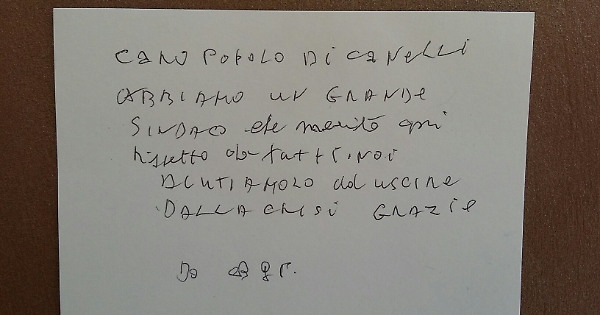 CARO POPOLO DI CANELLI
ABBIAMO UN GRANDE
SINDACO che merita ogni
rispetto da tutti noi
AIUTIAMOLO ad USCIRE
DALLA CRISI GRAZIE